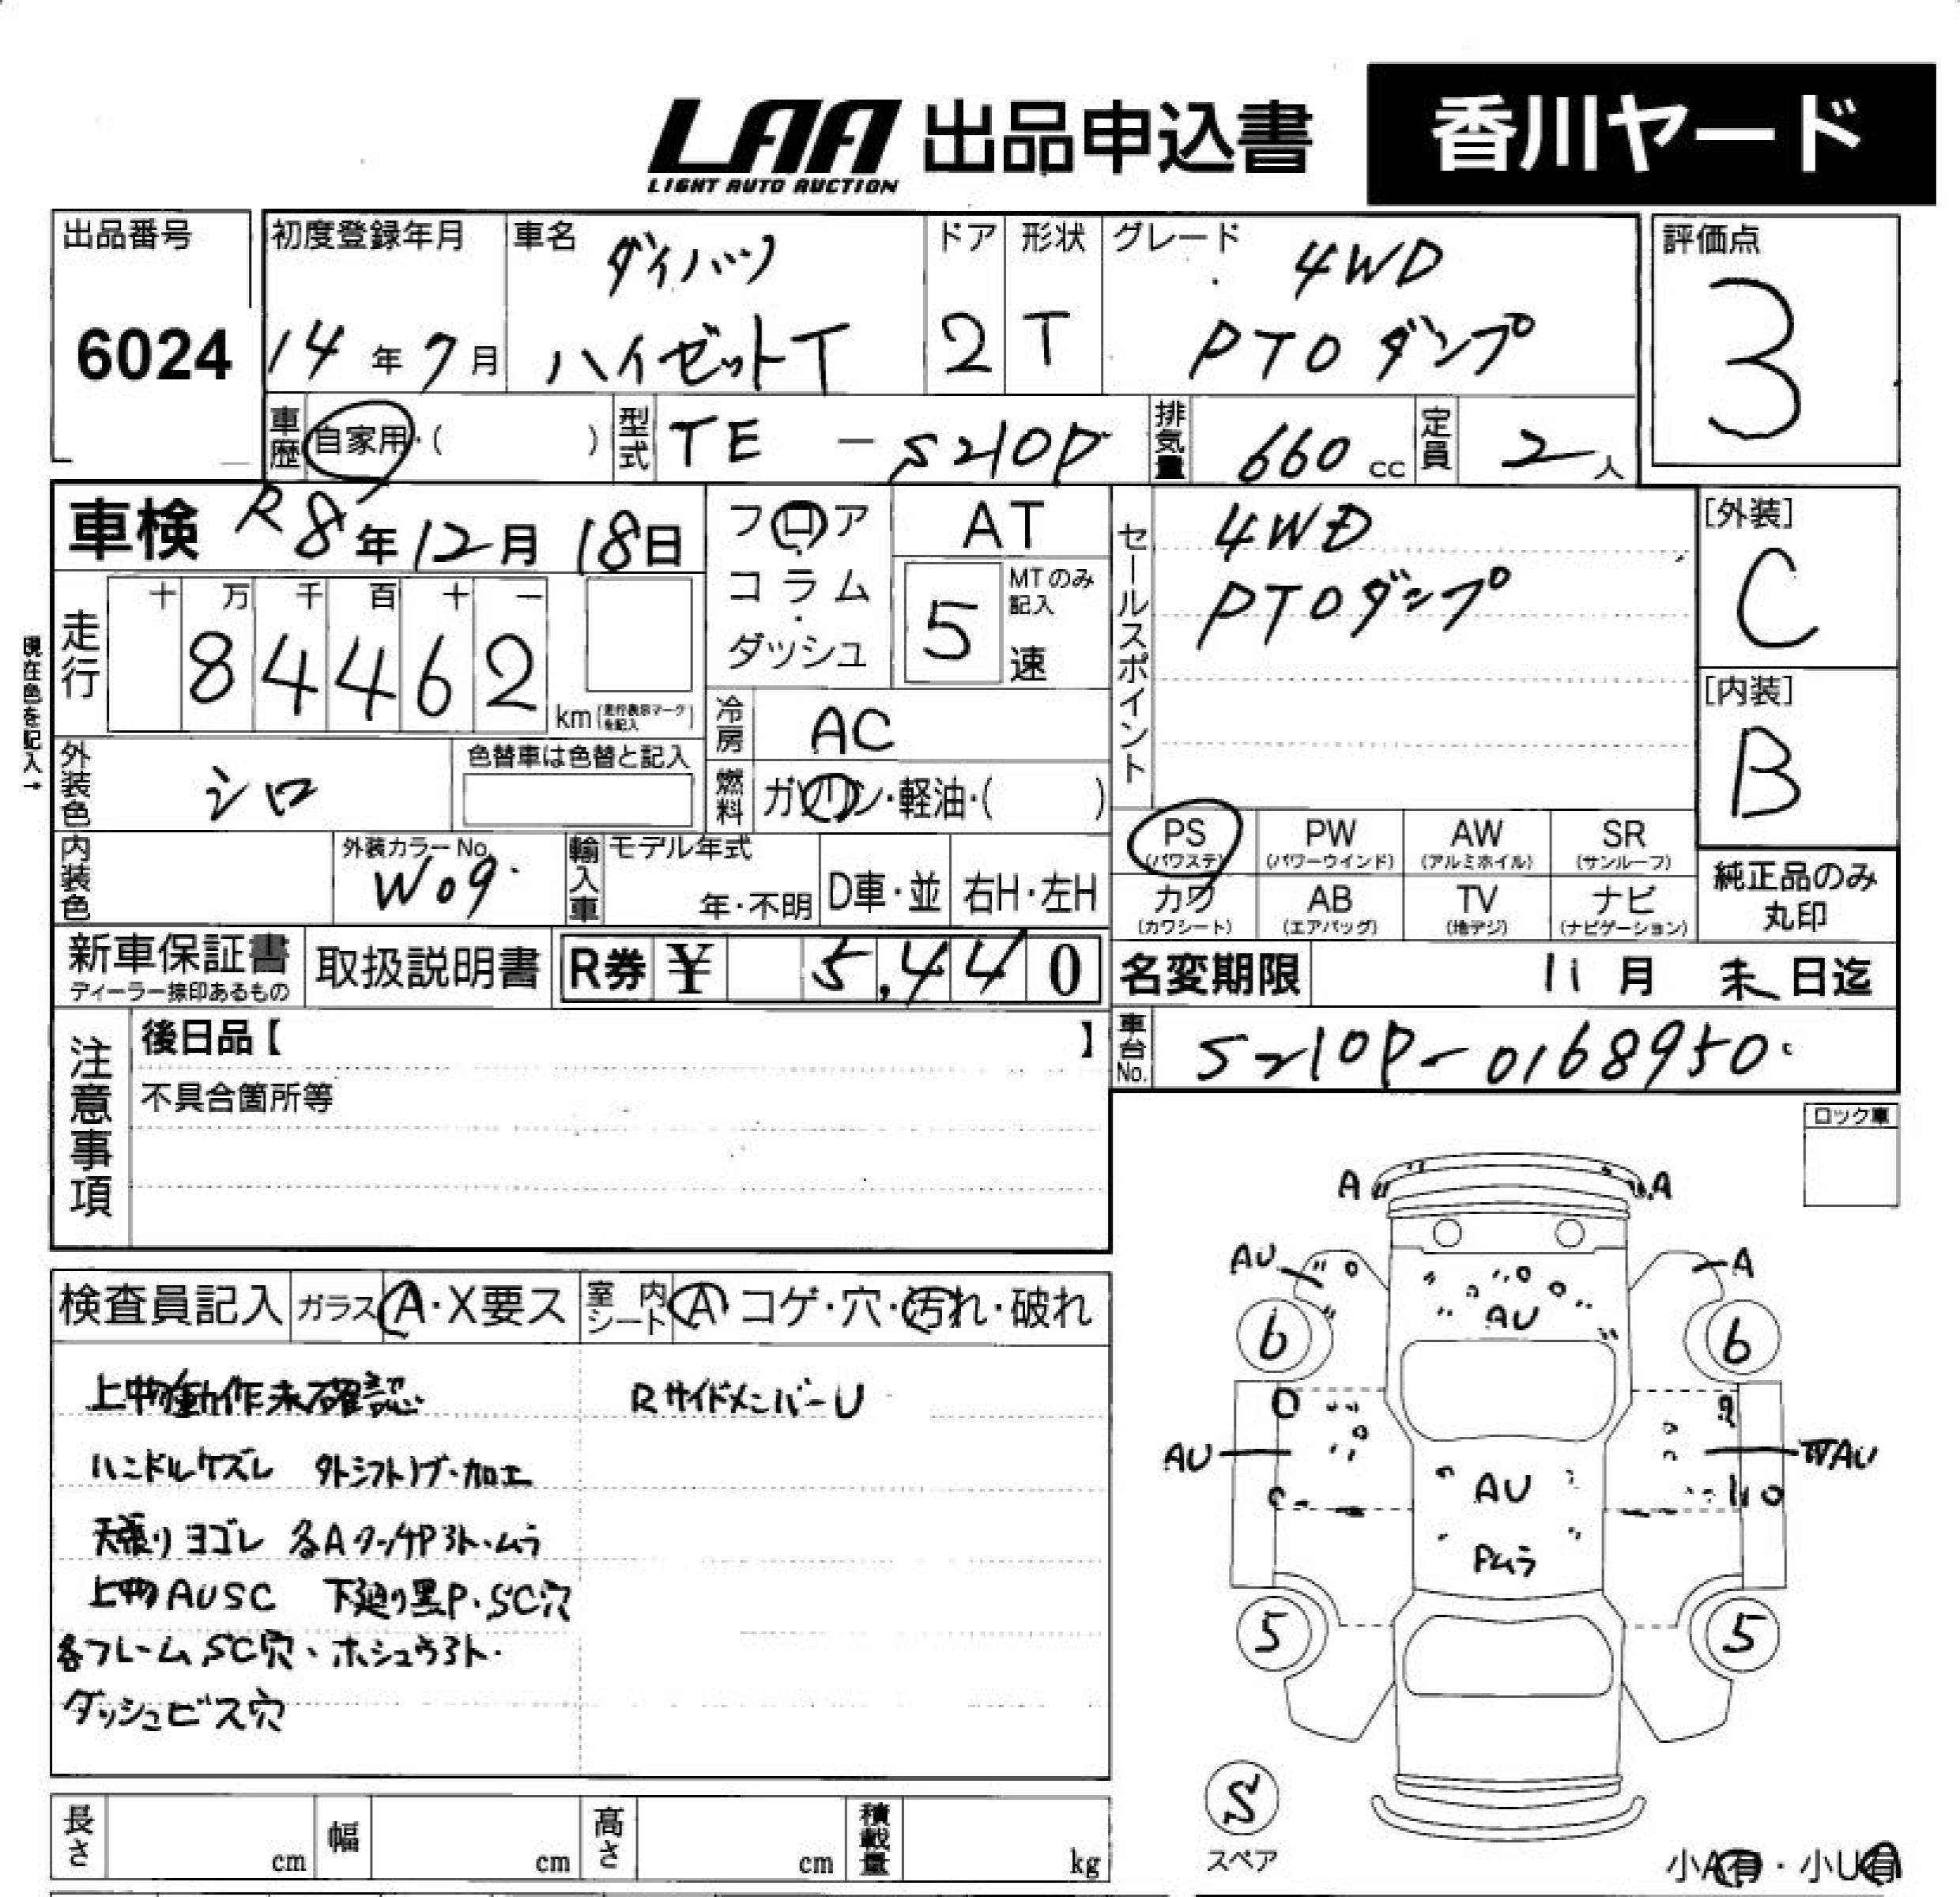 LAA 出品申込書 香川ヤード
LIGHT AUTO AUCTION
出品番号 6024
初度登録年月 14年7月
車名 ダイハツ ハイゼットT
ドア 2
形状 T
グレード 4WD PTOダンプ
評価点 3
車歴 自家用・( )
型式 TE - S210P
排気量 660cc
定員 2人
車検 R8年12月18日
フロア・コラム・ダッシュ
AT
5 MTのみ記入 速
セールスポイント
4WD
PTOダンプ
[外装] C
[内装] B
現在色を記入→
走行 十万千百十一
84462 km(走行表示マークを記入)
冷房 AC
燃料 ガソリン・軽油・( )
外装色 シロ
色替車は色替と記入
内装色
外装カラーNo. W09
輸入車 モデル年式 年・不明 D車・並 右H・左H
PS (パワステ) PW (パワーウインド) AW (アルミホイル) SR (サンルーフ)
カワ (カワシート) AB (エアバッグ) TV (地デジ) ナビ (ナビゲーション)
純正品のみ丸印
新車保証書 ディーラー捺印あるもの
取扱説明書
R券 ¥ 5,440
名変期限 11月末日迄
車台No. S210P-0168950
注意事項
後日品【 】
不具合箇所等
ロック車
検査員記入 ガラス A・X要ス 室内シート A コゲ・穴・汚れ・破れ
上物動作未確認 RサイドメンバーU
ハンドルケズレ 外シフトノブ・加工
天張りヨゴレ 各AタッチPヨト・ムラ
上物AUSC 下廻り黒P・SC穴
各フレームSC穴・ホシュウヨト・
ダッシュビス穴
A A
AU A
AU
6 6
AU AU
AU
Pムラ
5 5
S
スペア
小A有・小U有
長さ cm 幅 cm 高さ cm 積載量 kg